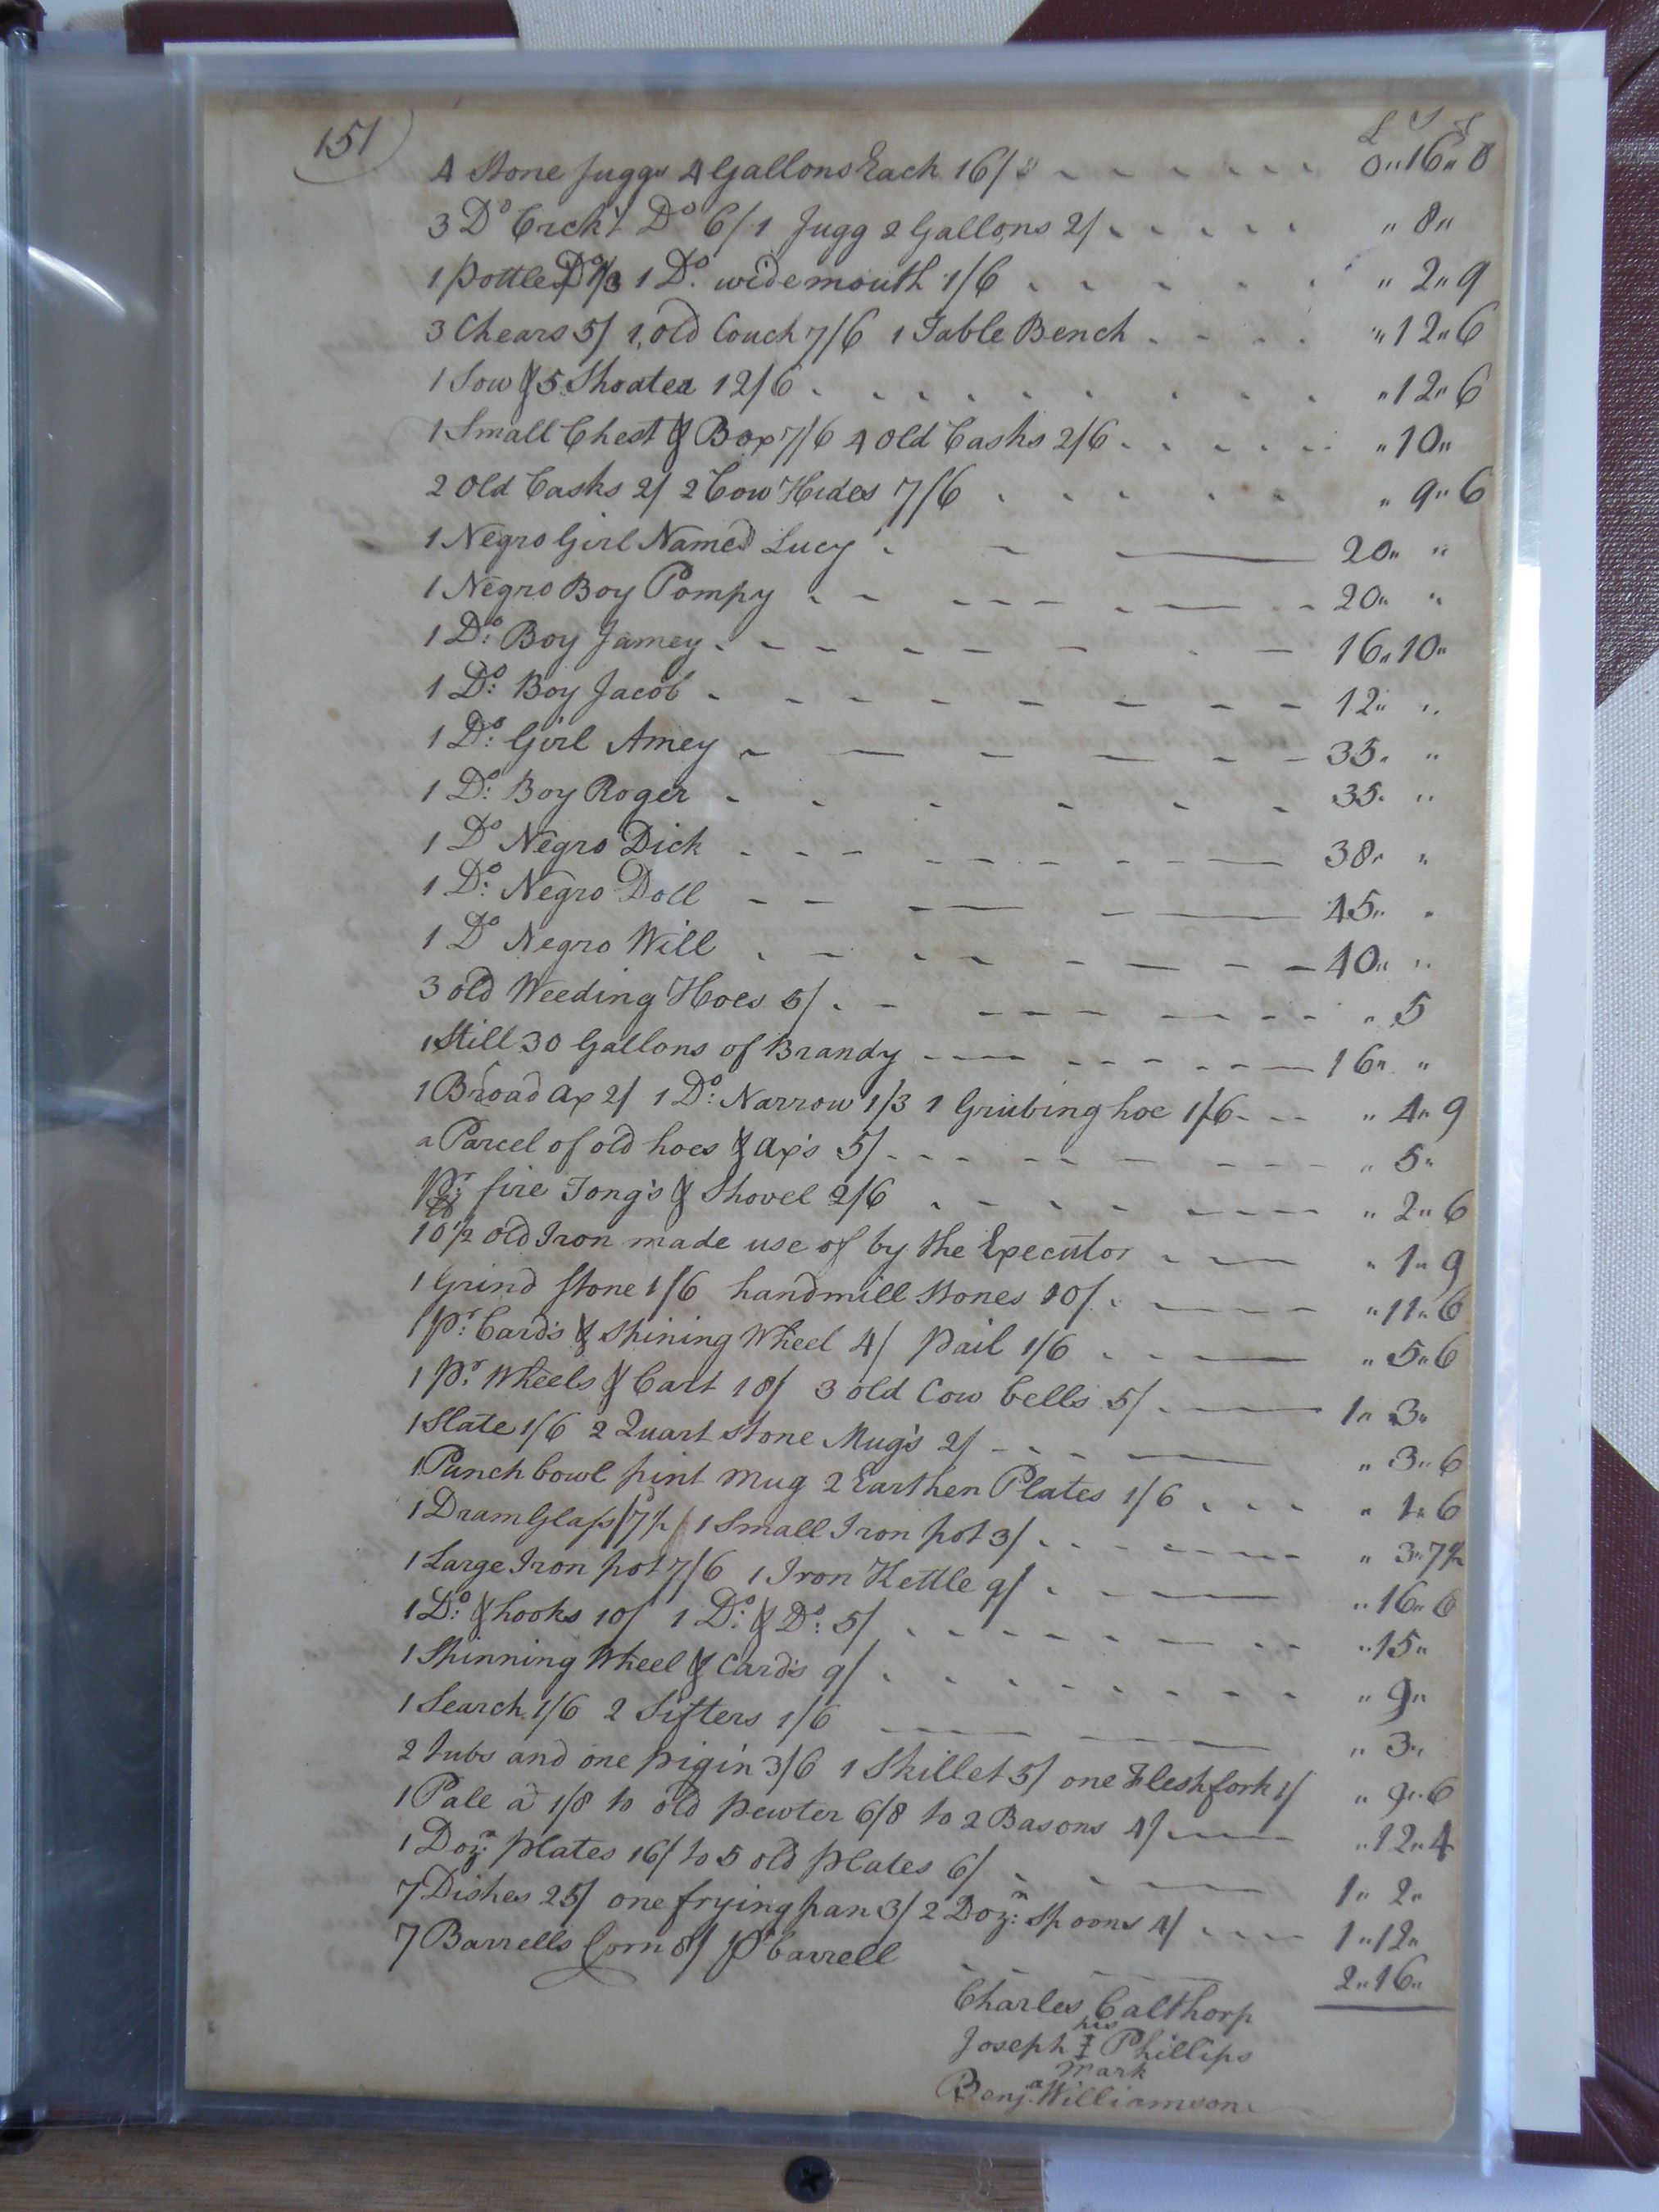 151
£ S d
4 Stone Juggs 4 Gallons Each 16/ 0"16"0
3 Do Crckt Do 6/ 1 Jugg 2 Gallons 2/ " 8"
1 Pottle Do 1/3 1 Do. wide mouth 1/6 " 2"9
3 Chears 5/ 1 old Couch 7/6 1 Table Bench "12"6
1 Sow & 5 Shoates 12/6 "12"6
1 Small Chest & Box 7/6 4 old Casks 2/6 "10"
2 Old Casks 2/ 2 Cow Hides 7/6 " 9"6
1 Negro Girl Named Lucy 20" "
1 Negro Boy Pompy 20" "
1 Do: Boy Jamey 16"10"
1 Do: Boy Jacob 12" "
1 Do: Girl Amey 35" "
1 Do: Boy Roger 35" "
1 Do Negro Dick 38" "
1 Do: Negro Doll 45" "
1 Do Negro Will 40" "
3 old Weeding Hoes 5/ " 5
1 Still 30 Gallons of Brandy 16" "
1 Broad ax 2/ 1 Do: Narrow 1/3 1 Grubing hoe 1/6 " 4"9
a Parcel of old hoes & ax's 5/ " 5"
1 pr: fire Tong's & Shovel 2/6 " 2"6
10 1/2 old Iron made use of by the Executor " 1"9
1 Grind stone 1/6 handmill Stones 10/ "11"6
1 pr: Card's & Spining Wheel 4/ Pail 1/6 " 5"6
1 pr. Wheels & Cart 18/ 3 old Cow bells 5/ 1" 3"
1 Slate 1/6 2 Quart stone Mug's 2/ " 3"6
1 Punch bowl pint mug 2 Earthen Plates 1/6 " 1"6
1 Dram Glass /7 1/2 1 Small Iron pot 3/ " 3"7 1/2
1 Large Iron pot 7/6 1 Iron Kettle 9/ "16"6
1 Do: & hooks 10/ 1 Do: & Do: 5/ "15"
1 Spinning Wheel & Card's 9/ " 9"
1 Search 1/6 2 Sifters 1/6 " 3"
2 tubs and one pigin 3/6 1 Skillet 5/ one Fleshfork 1/ " 9"6
1 Pale a 1/8 to old pewter 6/8 to 2 Basons 4/ "12"4
1 Dozn: plates 16/ to 5 old plates 6/ 1" 2"
7 Dishes 25/ one frying pan 3/ 2 Dozn: Spoons 4/ 1"12"
7 Barrells Corn 8/ pr barrell 2"16"
Charles Calthorp
his
Joseph I Phillips
mark
Benja. Williamson